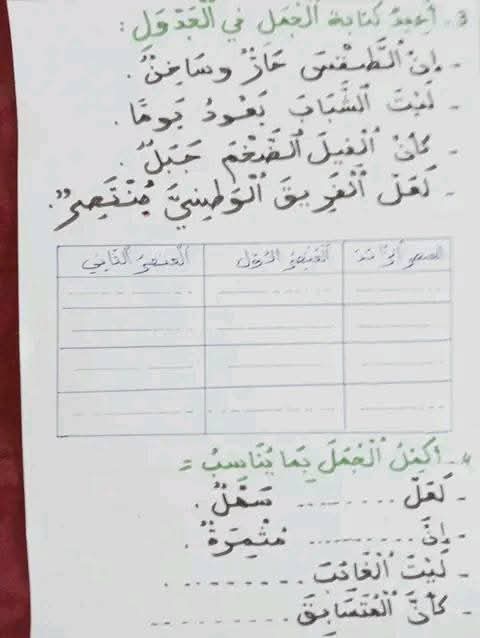 3- أعيدُ كتابة الْجُمَلِ في الْجَدْوَلِ :
- إنّ الطَّقْسَ حَارٌّ وسَاخِنٌ .
- لَيْتَ الشَّبَابَ يَعُودُ يَومًا .
- كَأَنَّ الْفِيلَ الضَّخْمَ جَبَلٌ .
- لَعَلَّ الْفَرِيقَ الْوَطَنِيَّ مُنْتَصِرٌ .
الْعُنْصُرُ الأوّلُ العنصر الثّاني
4- أُكْمِلُ الْجُمَلَ بِمَا يُنَاسِبُ =
- لَعَلَّ ......... سَهْلٌ .
- إنَّ ......... مُثْمِرَةٌ .
- لَيْتَ الْغَائبَ .........
- كَأَنَّ الْمُتَسَابِقَ .........